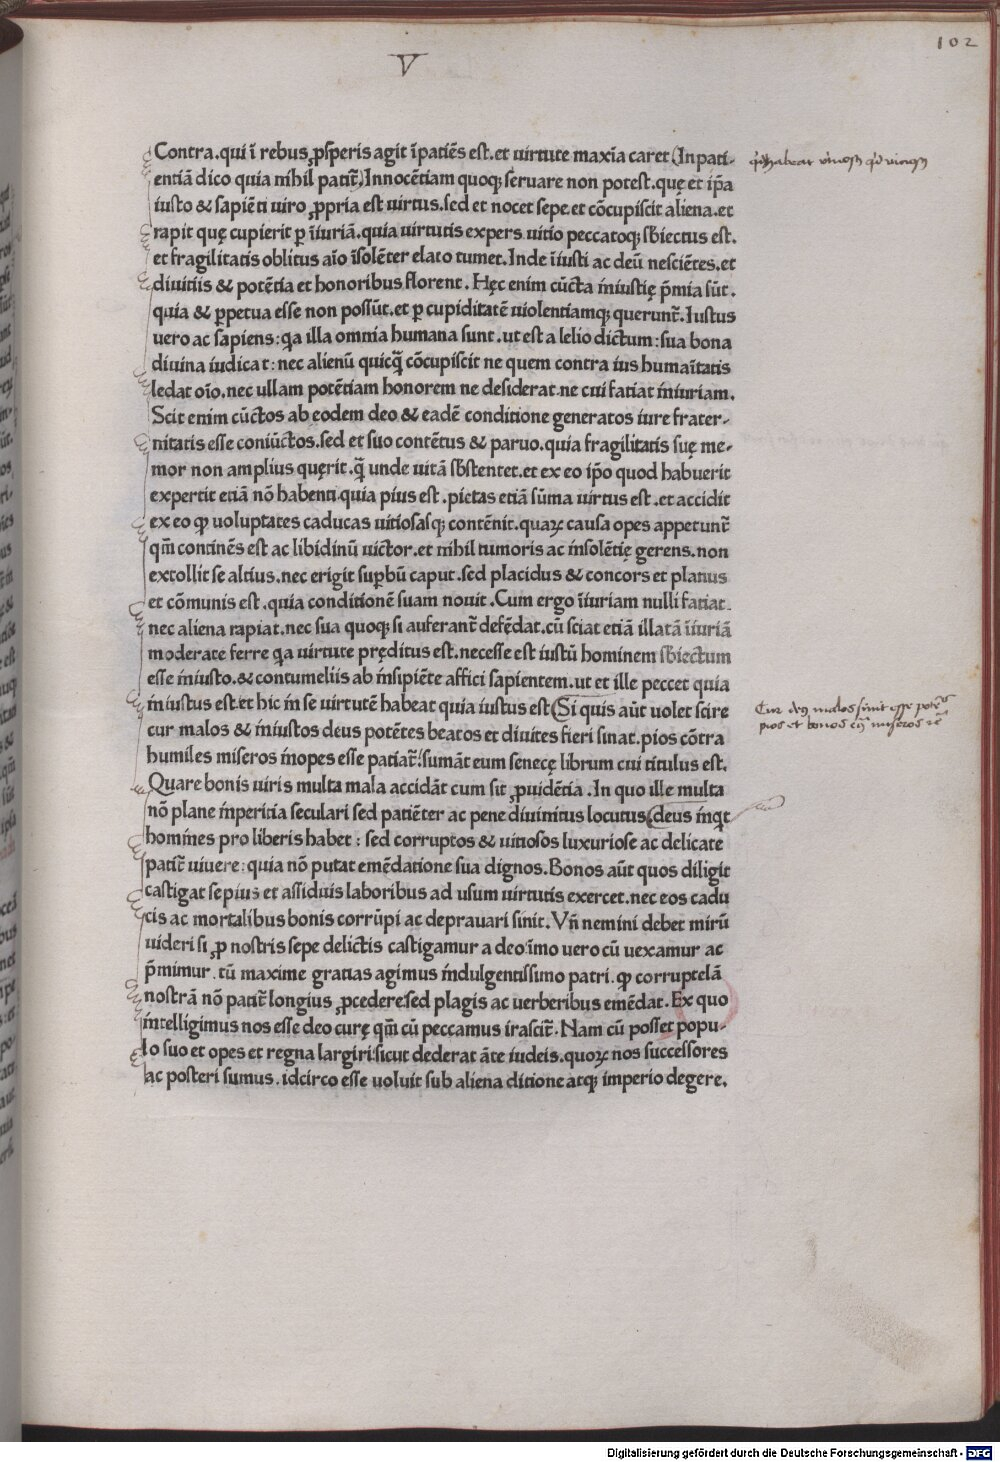 102
V
Contra.qui ī rebus ꝓſperis agit īpatiēs eſt.et uirtute maxīa caret (Inpati-
entiā dico quia nihil patit᷑) Innocētiam quoqꝫ ſeruare non poteſt.quę et ip̄a
iuſto & ſapiēti uiro ꝓpria eſt uirtus.ſed et nocet ſepe.et cōcupiſcit aliena.et
rapit quę cupierit ꝑ īiuriā.quia uirtutis expers uitio peccatoqꝫ ſƀiectus eſt.
et fragilitatis oblitus aīo īſolēter elato tumet.Inde īiuſti ac deū neſciētes.et
diuitiis & potētia et honoribus florent. Hęc enim cūcta iniuſtię p̄mia ſūt.
quia & ꝑpetua eſſe non poſſūt.et ꝑ cupiditatē uiolentiamqꝫ querunt᷑.Iuſtus
uero ac ſapiens:qa illa omnia humana ſunt.ut eſt a lelio dictum:ſua bona
diuina iudicat:nec alienū quicq̄ cōcupiſcit ne quem contra ius humaītatis
ledat oīo.nec ullam potētiam honorem ne deſiderat.ne cui fatiat iniuriam.
Scit enim cūctos ab eodem deo & eadē conditione generatos iure frater-
nitatis eſſe coniūctos.ſed et ſuo contētus & paruo.quia fragilitatis ſuę me-
mor non amplius quęrit.q̄ unde uitā ſƀſtentet.et ex eo ip̄o quod habuerit
expertit etiā nō habenti.quia pius eſt.pietas etiā ſūma uirtus eſt.et accidit
ex eo ꝙ uoluptates caducas uitioſaſqꝫ contēnit.quaꝝ cauſa opes appetunt᷑
qm̄ continēs eſt ac libidinū uictor.et nihil tumoris ac inſolētię gerens.non
extollit ſe altius.nec erigit ſuꝑbū caput.ſed placidus & concors et planus
et cōmunis eſt.quia conditionē ſuam nouit.Cum ergo īiuriam nulli fatiat.
nec aliena rapiat.nec ſua quoqꝫ ſi auferant᷑ defēdat.cū ſciat etiā illatā īiuriā
moderate ferre qa uirtute pręditus eſt.neceſſe eſt iuſtū hominem ſƀiectum
eſſe iniuſto.& contumeliis ab inſipiēte affici ſapientem.ut et ille peccet quia
iniuſtus eſt.et hic in ſe uirtutē habeat quia iuſtus eſt (Si quis aūt uolet ſcire
cur malos & iniuſtos deus potētes beatos et diuites fieri ſinat.pios cōtra
humiles miſeros inopes eſſe patiat᷑:ſumāt eum ſenecę librum cui titulus eſt.
Quare bonis uiris multa mala accidāt cum ſit ꝓuidētia.In quo ille multa
nō plane inperitia ſeculari ſed patiēter ac pene diuinitus locutus (deus inqt
homines pro liberis habet: ſed corruptos & uitioſos luxurioſe ac delicate
patit᷑ uiuere:quia nō putat emēdatione ſua dignos.Bonos aūt quos diligit
caſtigat ſepius et aſſiduis laboribus ad uſum uirtutis exercet.nec eos cadu
cis ac mortalibus bonis corrūpi ac deprauari ſinit.Vn̄ nemini debet mirū
uideri ſi ꝓ noſtris ſepe delictis caſtigamur a deo:imo uero cū uexamur ac
p̄mimur.tū maxime gratias agimus indulgentiſſimo patri.ꝙ corruptelā
noſtrā nō patit᷑ longius ꝓcedere:ſed plagis ac uerberibus emēdat.Ex quo
intelligimus nos eſſe deo curę qm̄ cū peccamus iraſcit᷑.Nam cū poſſet popu-
lo ſuo et opes et regna largiri:ſicut dederat āte iudeis.quoꝝ nos ſucceſſores
ac poſteri ſumus.idcirco eſſe uoluit ſub aliena ditione atqꝫ imperio degere.
Cur deus malos sinit esse
pios et bonos miseros
Digitalisierung gefördert durch die Deutsche Forschungsgemeinschaft - DFG